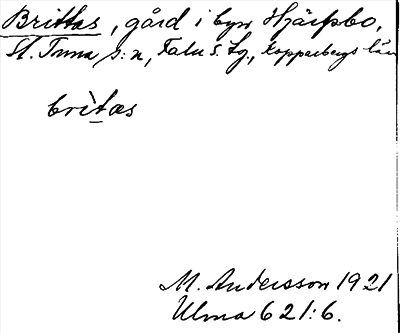 Brittas, gård i byn Hjärpbo,
St. Tuna s:n, Falu s. tg., Kopparbergs län
britas
M. Andersson 1921
Ulma 621:6.